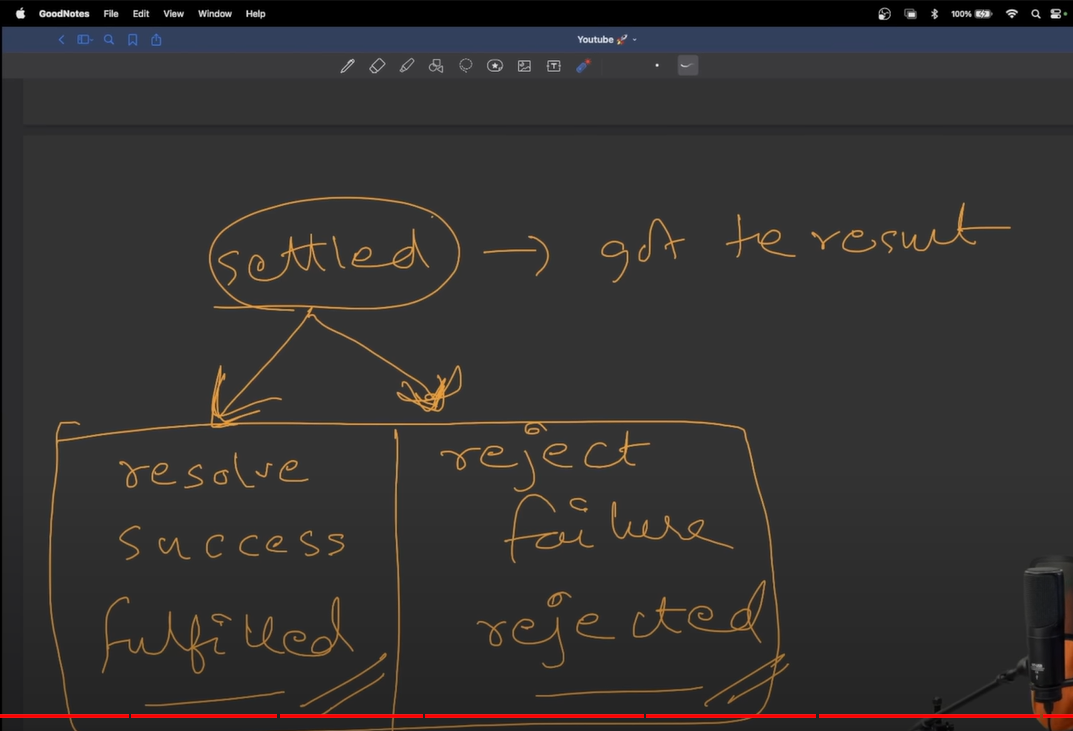 GoodNotes File Edit View Window Help 100%
Youtube 🚀
settled → got te result
resolve reject
success failure
fulfilled rejected